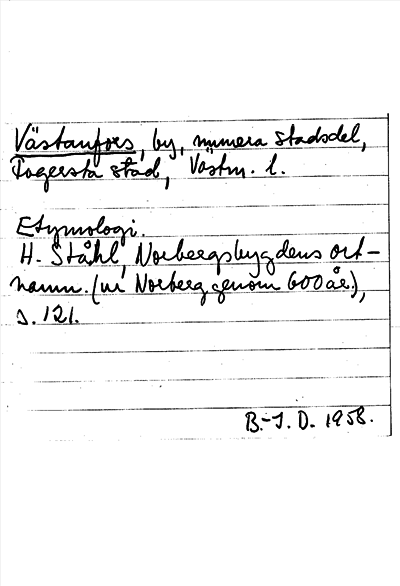 Västanfors, by, numera stadsdel,
Fagersta stad, Västm. l.
Etymologi.
H. Ståhl, Norbergsbygdens ort-
namn. (ur Norberg genom 600 år),
s. 121.
B.-I. D. 1958.